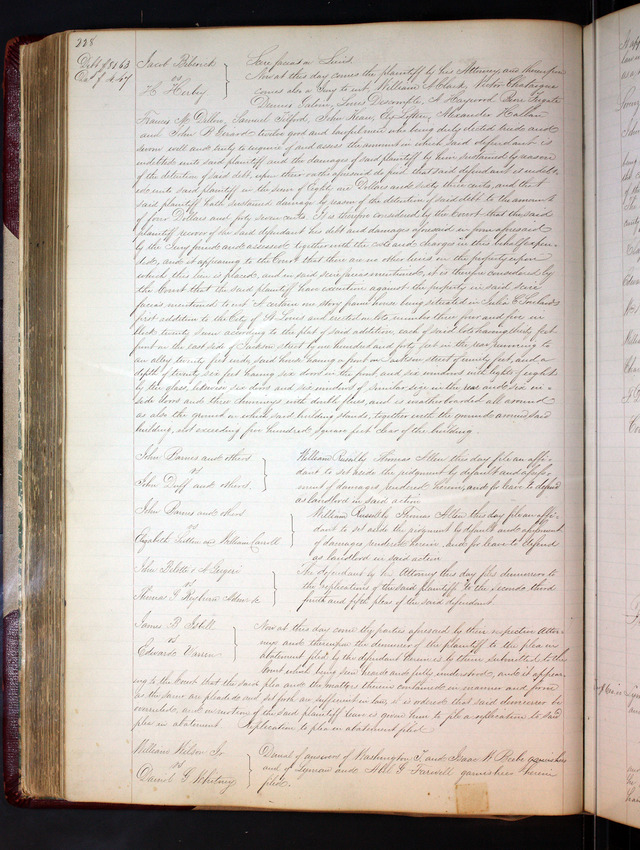 228
Debt $80.63
Dat $4.47
Jacob Babcock
vs
H. Herby
Scire facias on Lien.
Now at this day comes the plaintiff by his Attorney, and thereupon
comes also a Jury to wit, William A Clark, Victor
Dennis Galvin, Louis Descomples, A Haywood,
Francis M Dillon, Samuel Tilford, John Kean, Ely Lofton, Alexander Hallam
and John P Girard twelve good and lawful men who being duly elected tried and
sworn well and truly to inquire of and assess the amount in which said defendant is
indebted unto said plaintiff and the damages of said plaintiff by him sustained by reason
of the detention of said debt, upon their oaths aforesaid do find that said defendant is indebt-
ed unto said plaintiff in the sum of Eighty six Dollars and sixty three cents, and that
said plaintiff hath sustained damage by reason of the detention of said debt to the amount
of four Dollars and forty seven cents. It is therefore considered by the Court that the said
plaintiff recover of the said defendant his debt and damages aforesaid in form aforesaid
by the Jury found and assessed together with the costs and charges in this behalf expen-
ded, and it appearing to the Court that there are no other liens on the property upon
which this lien is placed, and in said scire facias mentioned, it is therefore considered by
the Court that the said plaintiff have execution against the property in said scire
facias mentioned to wit A certain one story frame house being situated in Julia C. Soulards
first addition to the City of St Louis and erected on lots number three four and five in
block twenty seven according to the plat of said addition, each of said lots having thirty feet
front on the east side of Jackson street by one hundred and forty feet in the rear running to
an alley twenty feet wide, said house having a front on Jackson street of ninety feet, and a
depth of twenty six feet having six doors in the front and six windows with lights of eight
by ten glass, likewise six doors and six windows of similar size in the rear and six in-
side doors and three chimneys with double flues, and is weatherboarded all around
as also the ground on which said building stands, together with the ground around said
building, not exceeding five hundred square feet clear of the building.
John Barnes and others
vs
John Duff and others
William Russell by Thomas Allen this day files an affi-
davit to set aside the judgment by default and assess-
ment of damages rendered herein, and for leave to defend
as landlord in said action
John Barnes and others
vs
Elizabeth Sutton and William Carroll
William Russell by Thomas Allen this day files an affi-
davit to set aside the judgment by default and assessment
of damages rendered herein and for leave to defend
as landlord in said action
John &
vs
Thomas J
The defendant by his Attorney this day files demurrer to
the replications of the said plaintiff to the second third
fourth and fifth pleas of the said defendant
James B Isbell
vs
Edward Warren
Now at this day come the parties aforesaid by their respective Attor-
neys and thereupon the demurrer of the plaintiff to the plea in
abatement filed by the defendant herein is by them submitted to the
Court which being seen heard and fully understood, and it appear-
ing to the Court that the said plea and the matters therein contained in manner and form
as the same are pleaded and set forth are sufficient in law, it is ordered that said demurrer be
overruled, and on motion of the said plaintiff leave is given him to file a replication to said
plea in abatement. Replication to plea in abatement filed.
William Wilson Jr
vs
Daniel G. Whitney
Denial of answers of Washington T. and Isaac W Beebe garnishees
and of Lyman and Abel G Farwell garnishees herein
filed.